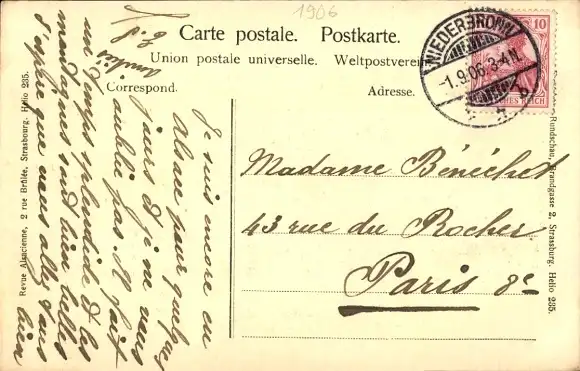 1906
Carte postale. Postkarte.
Union postale universelle. Weltpostverein
Correspond. Adresse.
NIEDERBRONN
-1.9.06. 3-4 N.
10
REICH
Madame Bénéchet
43 rue du Rocher
Paris 8e
Je suis encore en
Alsace pour quelques
jours et je ne vous
oublie pas. Il fait
un temps splendide et les
montagnes sont bien belles
J'espère que vous allez tous
bien
Amitiés
Revue Alsacienne, 2 rue Brûlée, Strasbourg. Helio 235.
Rundschau, Brandgasse 2, Strassburg. Helio 235.